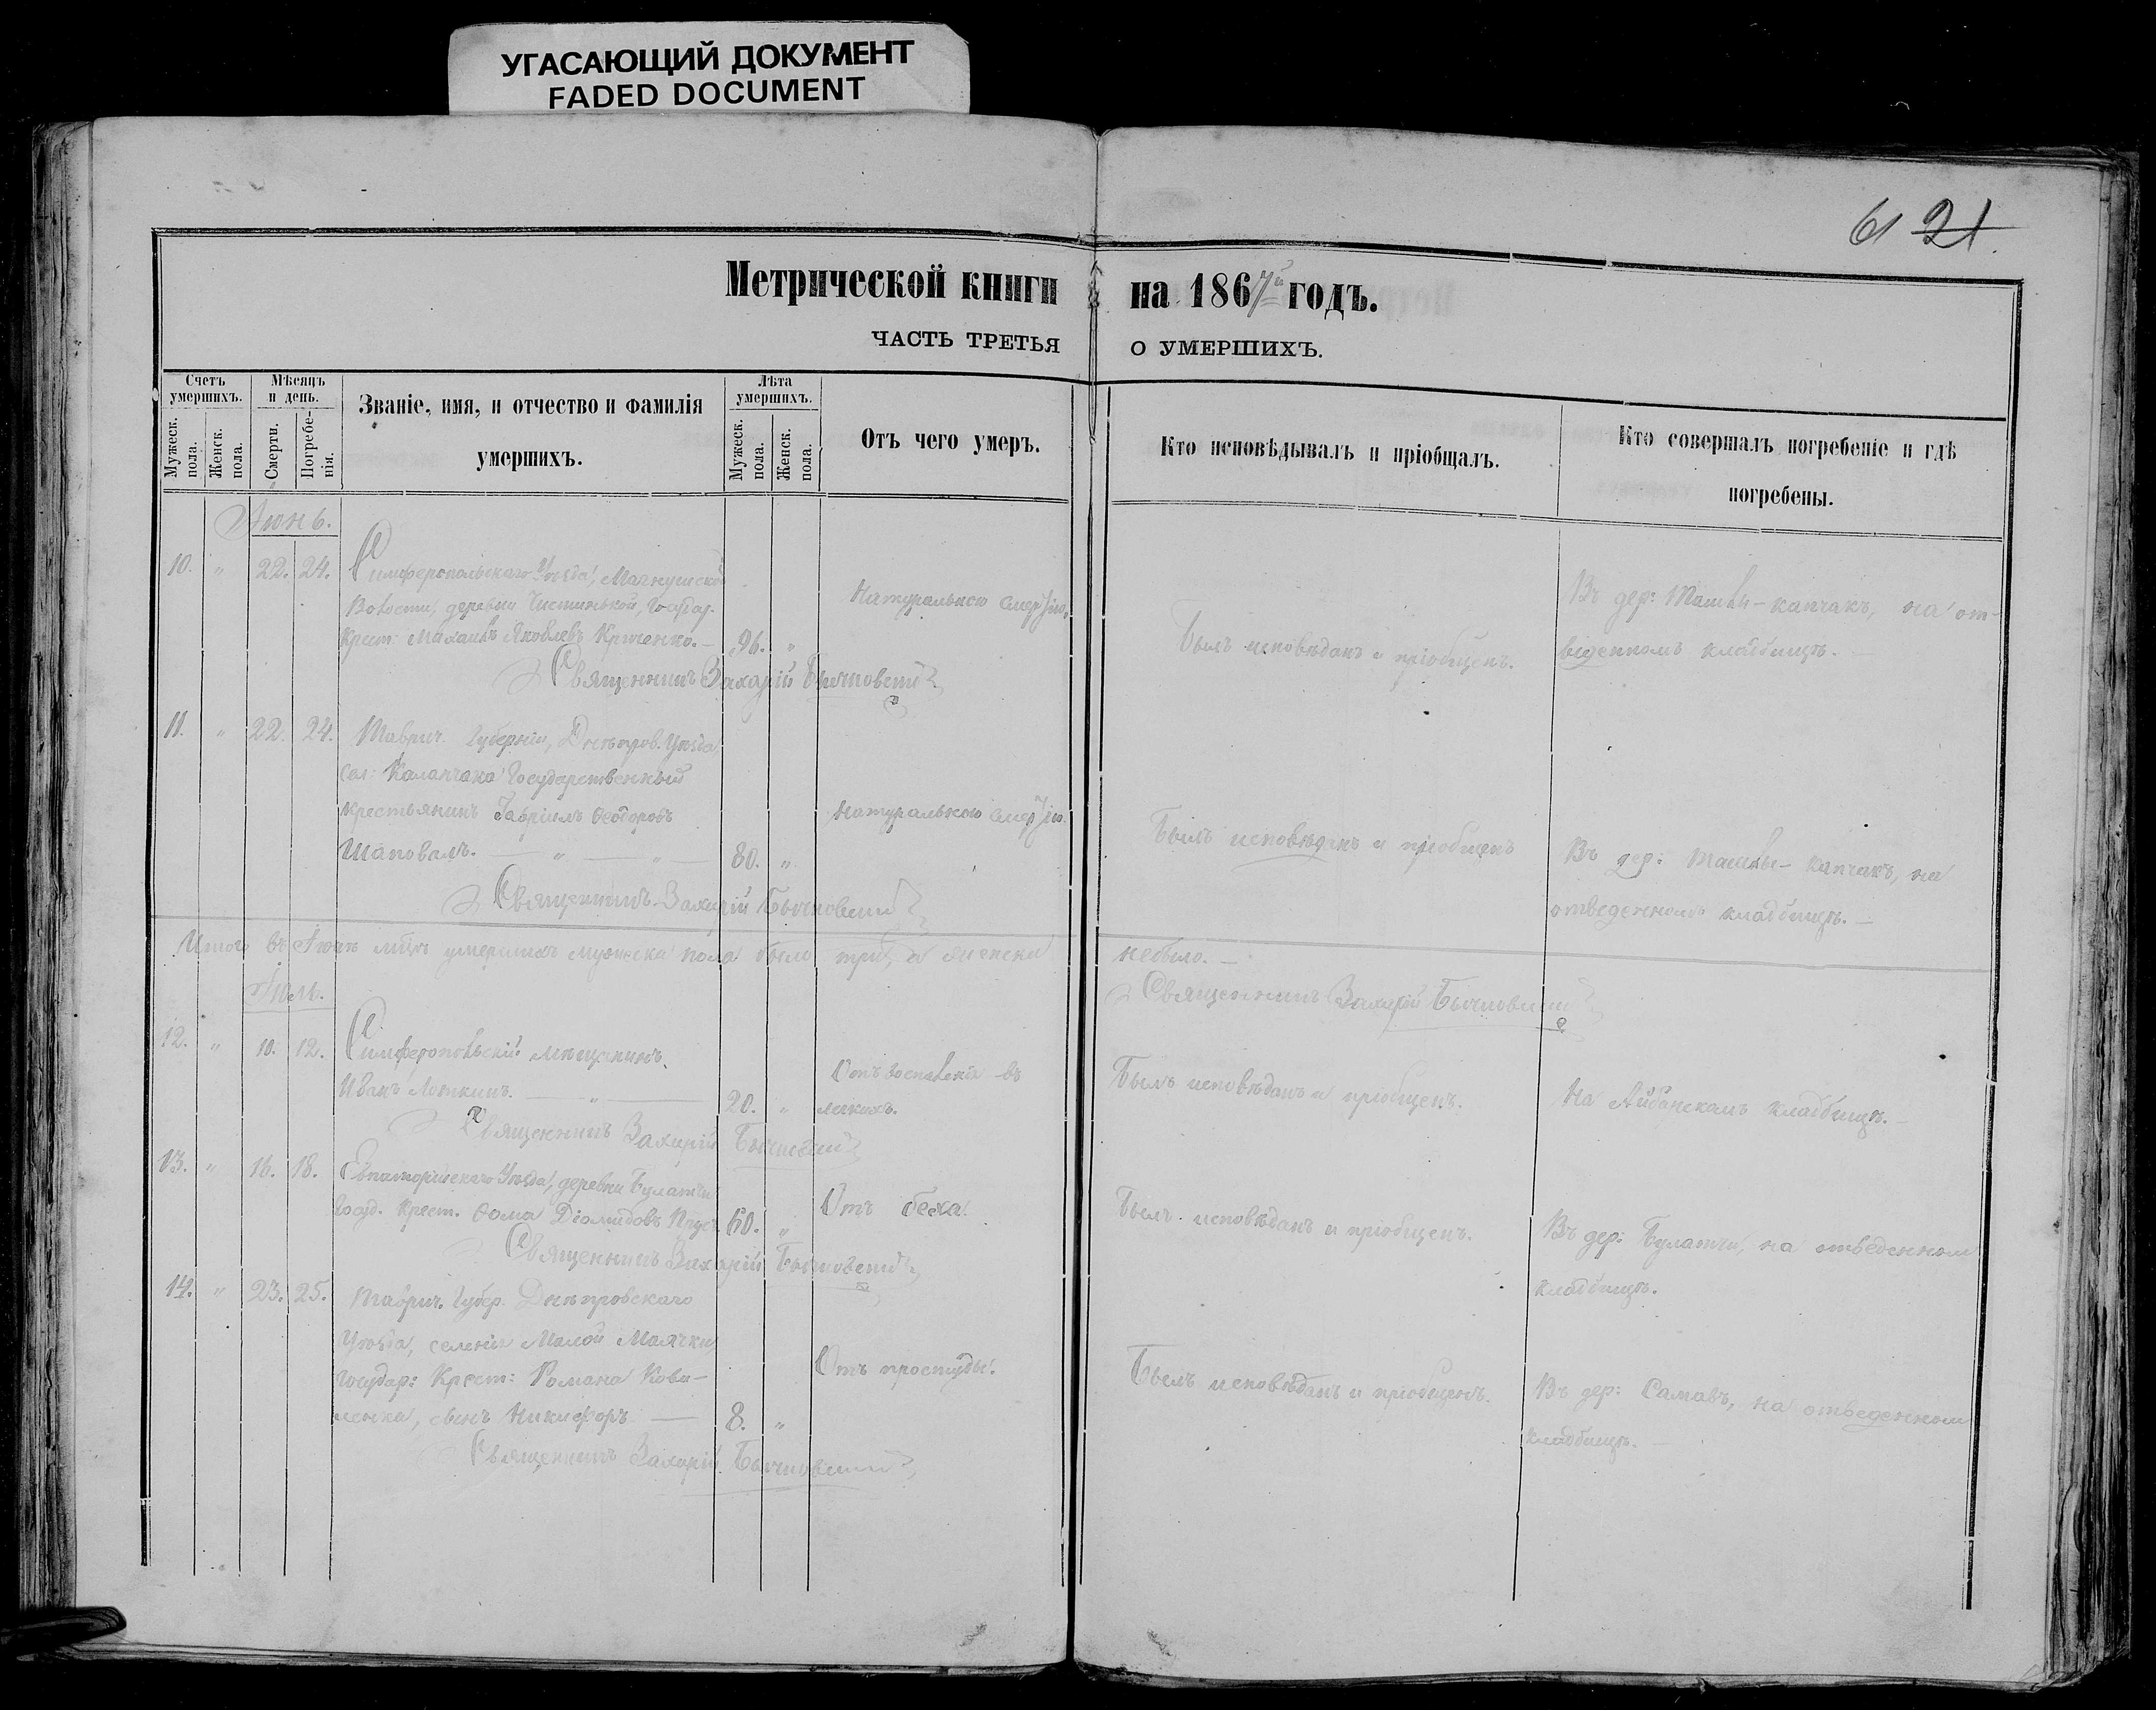 УГАСАЮЩИЙ ДОКУМЕНТ
FADED DOCUMENT
61 21.
Метрической книги на 1867й годъ.
ЧАСТЬ ТРЕТЬЯ О УМЕРШИХЪ.
Счетъ умершихъ.
Мужеск. пола.
Женск. пола.
Мѣсяцъ и день.
Смерти.
Погребенія.
Званіе, имя, и отчество и фамилія
умершихъ.
Лѣта умершихъ.
Мужеск. пола.
Женск. пола.
Отъ чего умеръ.
Кто исповѣдывалъ и пріобщалъ.
Кто совершалъ погребеніе и гдѣ
погребены.
Іюнь.
10. " 22. 24. Симферопольскаго Уѣзда,
Волости, деревни Государ.
Крест: Яковлевъ 96. "
Натуральною смертію.
Былъ исповѣданъ и пріобщенъ.
Въ дер: капчакъ, на от-
веденномъ кладбищѣ.
Священникъ Захарій
11. " 22. 24. Таврич. Губерніи, Днѣпров. Уѣзда
сел: Каланчака Государственный
крестьянинъ Гавріилъ Ѳеодоровъ
Шаповалъ. 80. "
Натуральною смертію.
Былъ исповѣданъ и пріобщенъ
Въ дер: капчакъ, на
отведенномъ кладбищѣ.
Священникъ Захарій
Итого въ Іюнѣ мцѣ умершихъ мужеска пола было три, а женска
небыло.
Священникъ Захарій
Іюль.
12. " 10. 12. Симферопольскій мѣщанинъ
Иванъ 20. "
Отъ воспаленія въ
легкихъ.
Былъ исповѣданъ и пріобщенъ.
На кладбищѣ.
Священникъ Захарій
13. " 16. 18. Евпаторійскаго Уѣзда, деревни
Госуд. Крест. Ѳома Діомидовъ 60. "
Отъ
Былъ исповѣданъ и пріобщенъ.
Въ дер: на отведенномъ
кладбищѣ.
Священникъ Захарій
14. " 23. 25. Таврич. Губер. Днѣпровскаго
Уѣзда, селенія Малой Маячки
Государ: Крест: Романа Кова-
ленка, сынъ Никифоръ 8. "
Отъ простуды.
Былъ исповѣданъ и пріобщенъ.
Въ дер: на отведенномъ
кладбищѣ.
Священникъ Захарій